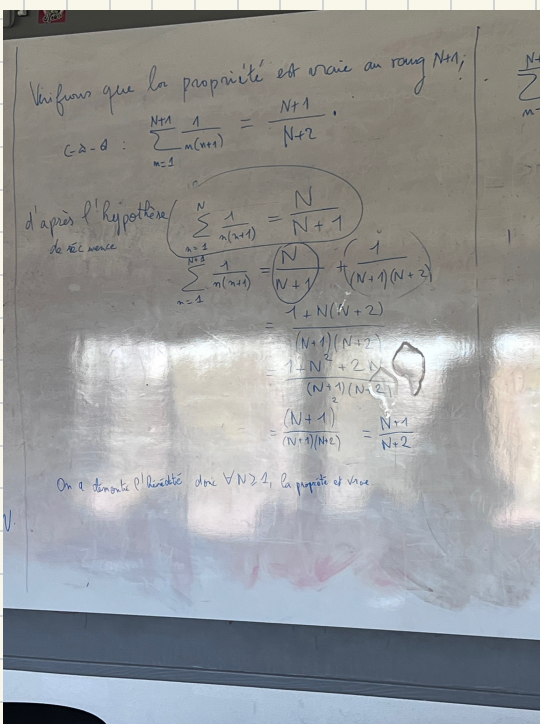 Vérifions que la propriété est vraie au rang N+1,
c-à-d : \sum_{n=1}^{N+1} \frac{1}{n(n+1)} = \frac{N+1}{N+2}.
d'après l'hypothèse de récurrence \sum_{n=1}^{N} \frac{1}{n(n+1)} = \frac{N}{N+1}
\sum_{n=1}^{N+1} \frac{1}{n(n+1)} = \frac{N}{N+1} + \frac{1}{(N+1)(N+2)}
= \frac{1+N(N+2)}{(N+1)(N+2)}
= \frac{1+N^2+2N}{(N+1)(N+2)}
= \frac{(N+1)^2}{(N+1)(N+2)} = \frac{N+1}{N+2}
On a démontré l'hérédité donc ∀N≥1, la propriété est vraie